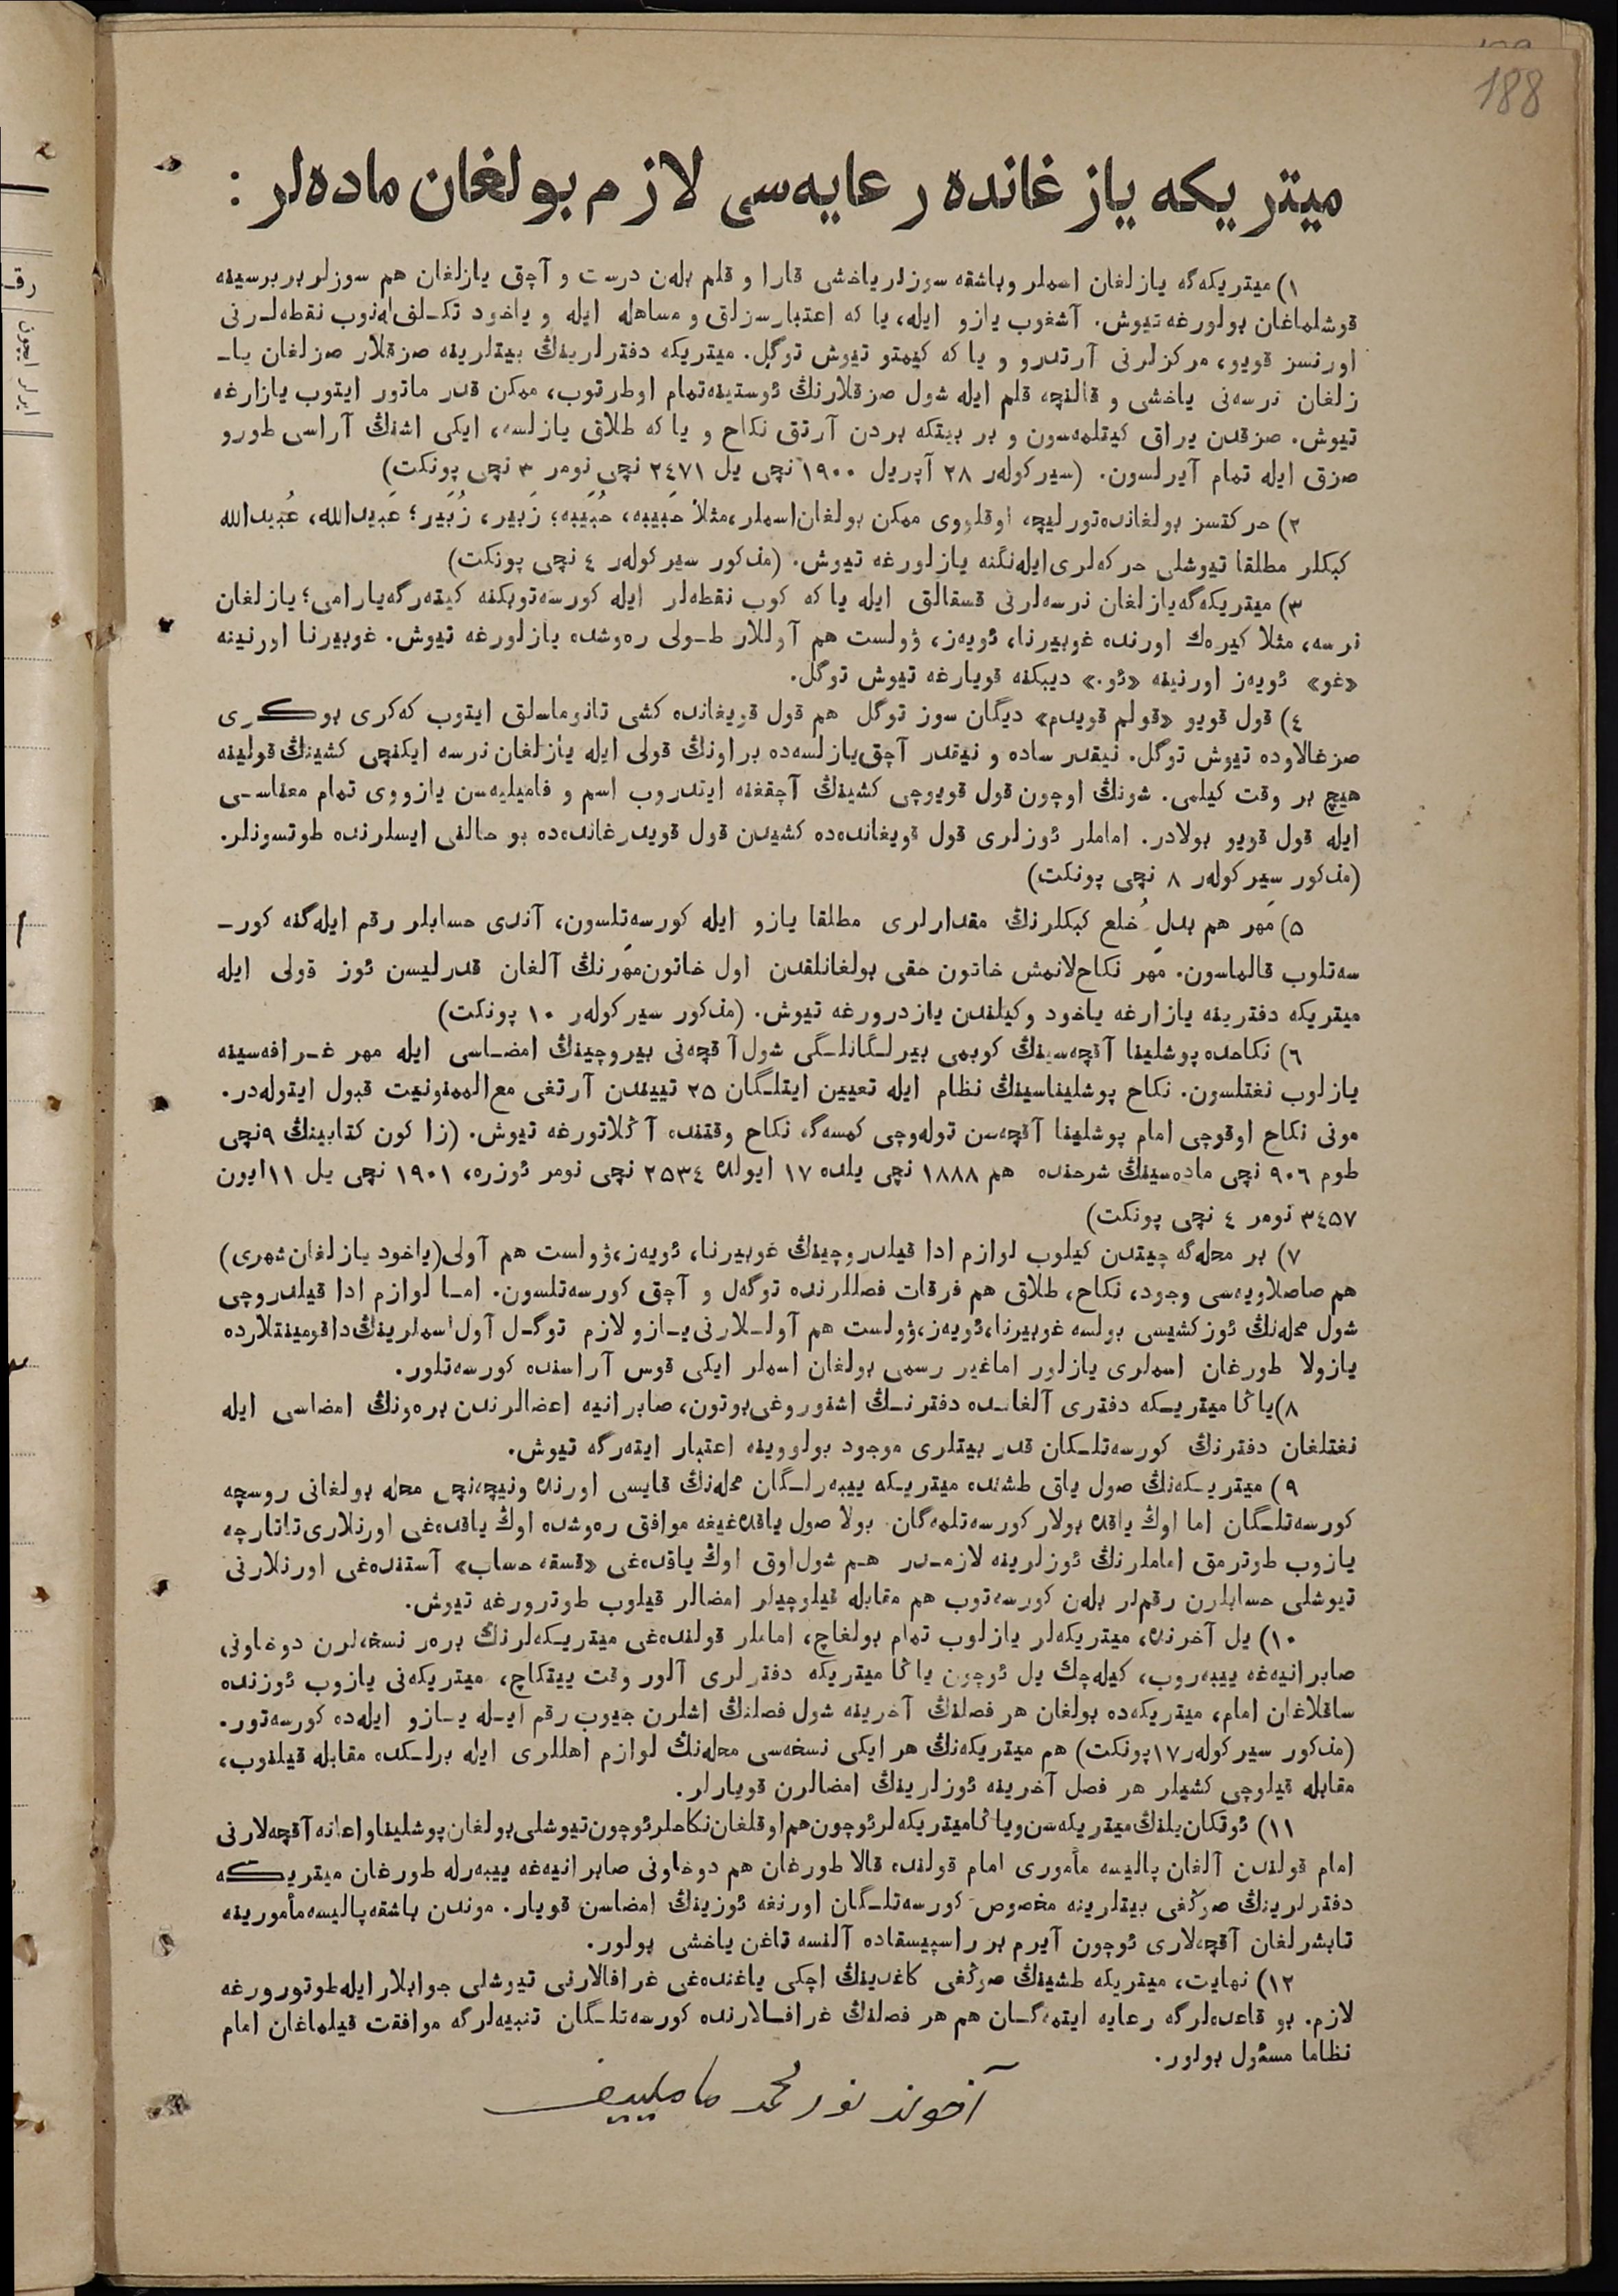 188
میتریکه یازغانده رعایه‌سی لازم بولغان ماده‌لر :
١) میتریکه‌گه یازلغان اسملر وباشقه سوزلر یاخشی قارا و قلم بله‌ن درست و آچق یازلغان هم سوزلر بربرسینه
قوشلماغان بولورغه تیوش. آشغوب یازو ایله، یا که اعتبارسزلق و مساهله ایله و یاخود تکلف‌له‌نوب نقطه‌لرنی
اورنسز قویو، مرکزلرنی آرتدرو و یا که کیمتو تیوش توگل. میتریکه دفترلرینڭ بیتلرینه صزقلار صزلغان یا-
زلغان نرسه‌نی یاخشی و قالنچه قلم ایله شول صزقلارنڭ ئوستینه‌تمام اوطرتوب، ممکن قدر ماتور ایتوب یازارغه
تیوش. صزقدن یراق کیتلمه‌سون و بر بیتکه بردن آرتق نکاح و یا که طلاق یازلسه، ایکی اشنڭ آراسی طورو
صزق ایله تمام آیرلسون. (سیرکولەر ٢٨ آپریل ١٩٠٠ نچی یل ٢٤٧١ نچی نومر ٣ نچی پونکت)
٢) حرکتسز بولغانده‌تورلیچه اوقلووی ممکن بولغان‌اسملر،مثلاً حَبیبه، حُبَیبه؛ زَبیر، زُبَیر؛ عَبیدالله، عُبَیدالله
کبکلر مطلقا تیوشلی حرکه‌لری‌ایله‌نگنه یازلورغه تیوش. (مذکور سیرکولەر ٤ نچی پونکت)
٣) میتریکه‌گه‌یازلغان نرسه‌لرنی قسقالق ایله یا که کوب نقطه‌لر ایله کورسه‌توبکنه کیته‌رگه‌یارامی؛ یازلغان
نرسه، مثلا کیره‌ك اورنده غوبیرنا، ئویه‌ز، ۋولست هم آوللار طولی ره‌وشده یازلورغه تیوش. غوبیرنا اورنینه
«غو» ئویه‌ز اورنینه «ئو.» دیبکنه قویارغه تیوش توگل.
٤) قول قویو «قولم قویدم» دیگان سوز توگل هم قول قویغانده کشی تانوماسلق ایتوب که‌کری بوکری
صزغالاوده تیوش توگل. نیقدر ساده و نیقدر آچق‌یازلسه‌ده براونڭ قولی ایله یازلغان نرسه ایکنچی کشینڭ قولینه
هیچ بر وقت کیلمی. شونڭ اوچون قول قویوچی کشینڭ آچقغنه ایتدروب اسم و فامیلیه‌سن یازووی تمام معناسی
ایله قول قویو بولادر. اماملر ئوزلری قول قویغانده‌ده کشیدن قول قویدرغانده‌ده بو حالنی ایسلرنده طوتسونلر.
(مذکور سیرکولەر ٨ نچی پونکت)
٥) مَهر هم بدلِ خُلع کبکلرنڭ مقدارلری مطلقا یازو ایله کورسه‌تلسون، آندی حسابلر رقم ایله‌گنه کور-
سه‌تلوب قالماسون. مَهر نکاح‌لانمش خاتون حقی بولغانلقدن اول خاتون‌مَهرنڭ آلغان قدرلیسن ئوز قولی ایله
میتریکه دفترینه یازارغه یاخود وکیلندن یازدرورغه تیوش. (مذکور سیرکولەر ١٠ پونکت)
٦) نکاحده پوشلینا آقچه‌سینڭ کوبمی بیرلگانلگی شول آقچه‌نی بیروچینڭ امضاسی ایله مهر غرافه‌سینه
یازلوب نغتلسون. نکاح پوشلیناسینڭ نظام ایله تعیین ایتلگان ٢٥ تییندن آرتغی مع‌الممنونیت قبول ایتوله‌در.
مونی نکاح اوقوچی امام پوشلینا آقچه‌سن توله‌وچی کمسه‌گه نکاح وقتنده آڭلاتورغه تیوش. (زاکون کتابینڭ ٩نچی
طوم ٩٠٦ نچی ماده‌سینڭ شرحنده هم ١٨٨٨ نچی یلده ١٧ ایولده ٢٥٣٤ نچی نومر ئوزره، ١٩٠١ نچی یل ١١ایون
٣٤٥٧ نومر ٤ نچی پونکت)
٧) بر محله‌گه چیتدن کیلوب لوازم ادا قیلدروچینڭ غوبیرنا، ئویه‌ز،ۋولست هم آولی(یاخود یازلغان‌شهری)
هم صاصلاویه‌سی وجود، نکاح، طلاق هم فرقات فصللرنده توگه‌ل و آچق کورسه‌تلسون. اما لوازم ادا قیلدروچی
شول محله‌نڭ ئوزکشیسی بولسه غوبیرنا،ئویه‌ز،ۋولست هم آوللارنی‌یازو لازم توگل آول‌اسملرینڭ‌داقومینتلارده
یازولا طورغان اسملری یازلور اماغیر رسمی بولغان اسملر ایکی قوس آراسنده کورسه‌تلور.
٨)یاڭا میتریکه دفتری آلغانده دفترنڭ اشنوروغی‌بوتون، صابرانیه اعضالرندن بره‌ونڭ امضاسی ایله
نغتلغان دفترنڭ کورسه‌تلکان قدر بیتلری موجود بولووینه اعتبار ایته‌رگه تیوش.
٩) میتریکه‌نڭ صول یاق طشنده میتریکه ییبه‌رلگان محله‌نڭ قایسی اورنده ونیچه‌نچی محله بولغانی روسچه
کورسه‌تلگان اما اوڭ یاقده بولار کورسه‌تلمه‌گان. بولا صول یاقده‌غیغه موافق ره‌وشده اوڭ یاقده‌غی اورنلاری‌تاتارچه
یازوب طوترمق اماملرنڭ ئوزلرینه لازمدر هم شول‌اوق اوڭ یاقده‌غی «قسقه حساب» آستنده‌غی اورنلارنی
تیوشلی حسابلرن رقملر بله‌ن کورسه‌توب هم مقابله قیلوچیلر امضالر قیلوب طوترورغه تیوش.
١٠) یل آخرنده، میتریکه‌لر یازلوب تمام بولغاچ، اماملر قولنده‌غی میتریکه‌لرنڭ بره‌ر نسخه‌لرن دوخاونی
صابرانیه‌غه ییبه‌روب، کیله‌چك یل ئوچون یاڭا میتریکه دفترلری آلور وقت ییتکاچ، میتریکه‌نی یازوب ئوزنده
ساقلاغان امام، میتریکه‌ده بولغان هر فصلنڭ آخرینه شول فصلنڭ اشلرن جیوب رقم ایله یازو ایله‌ده کورسه‌تور.
(مذکور سیرکولەر١٧پونکت) هم میتریکه‌نڭ هر ایکی نسخه‌سی محله‌نڭ لوازم اهللری ایله برلکده مقابله قیلنوب،
مقابله قیلوچی کشیلر هر فصل آخرینه ئوزلرینڭ امضالرن قویارلر.
١١) ئوتکان‌یلنڭ‌میتریکه‌سن‌ویاڭامیتریکه‌لرئوچون‌هم‌اوقلغان‌نکاحلرئوچون‌تیوشلی‌بولغان‌پوشلیناواعانه‌آقچه‌لارنی
امام قولندن آلغان پالیسه مأموری امام قولنده قالا طورغان هم دوخاونی صابرانیه‌غه ییبه‌رله طورغان میتریکه
دفترلرینڭ صوڭغی بیتلرینه مخصوص کورسه‌تلگان اورنغه ئوزینڭ امضاسن قویار. موندن باشقه‌پالیسه‌مأمورینه
تابشرلغان آقچه‌لاری ئوچون آیرم بر راسپیسقاده آلنسه تاغن یاخشی بولور.
١٢) نهایت، میتریکه طشینڭ صوڭغی کاغدینڭ اچکی یاغنده‌غی غرافالارنی تیوشلی جوابلار ایله‌طوتورورغه
لازم. بو قاعده‌لرگه رعایه ایتمه‌گان هم هر فصلنڭ غرافالارنده کورسه‌تلگان تنبیه‌لرگه موافقت قیلماغان امام
نظاما مسئول بولور.
آخوند نورمحمد مامليیف